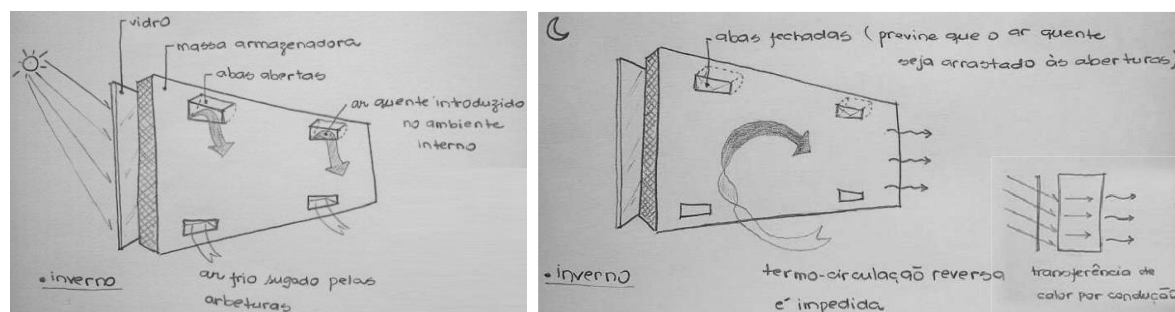 vidro
massa armazenadora
abas abertas
ar quente introduzido
no ambiente
interno
ar frio sugado pelas
arbeturas
• inverno
abas fechadas (previne que o ar quente
seja arrastado às aberturas)
• inverno
termo-circulação reversa
é impedida
transferência de
calor por condução